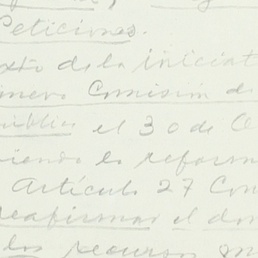 Peticiones.
xto de la iniciat
imera Comisión de
ública el 30 de O
iendo la reforma
Artículo 27 Con
reafirmar el dom
los recursos